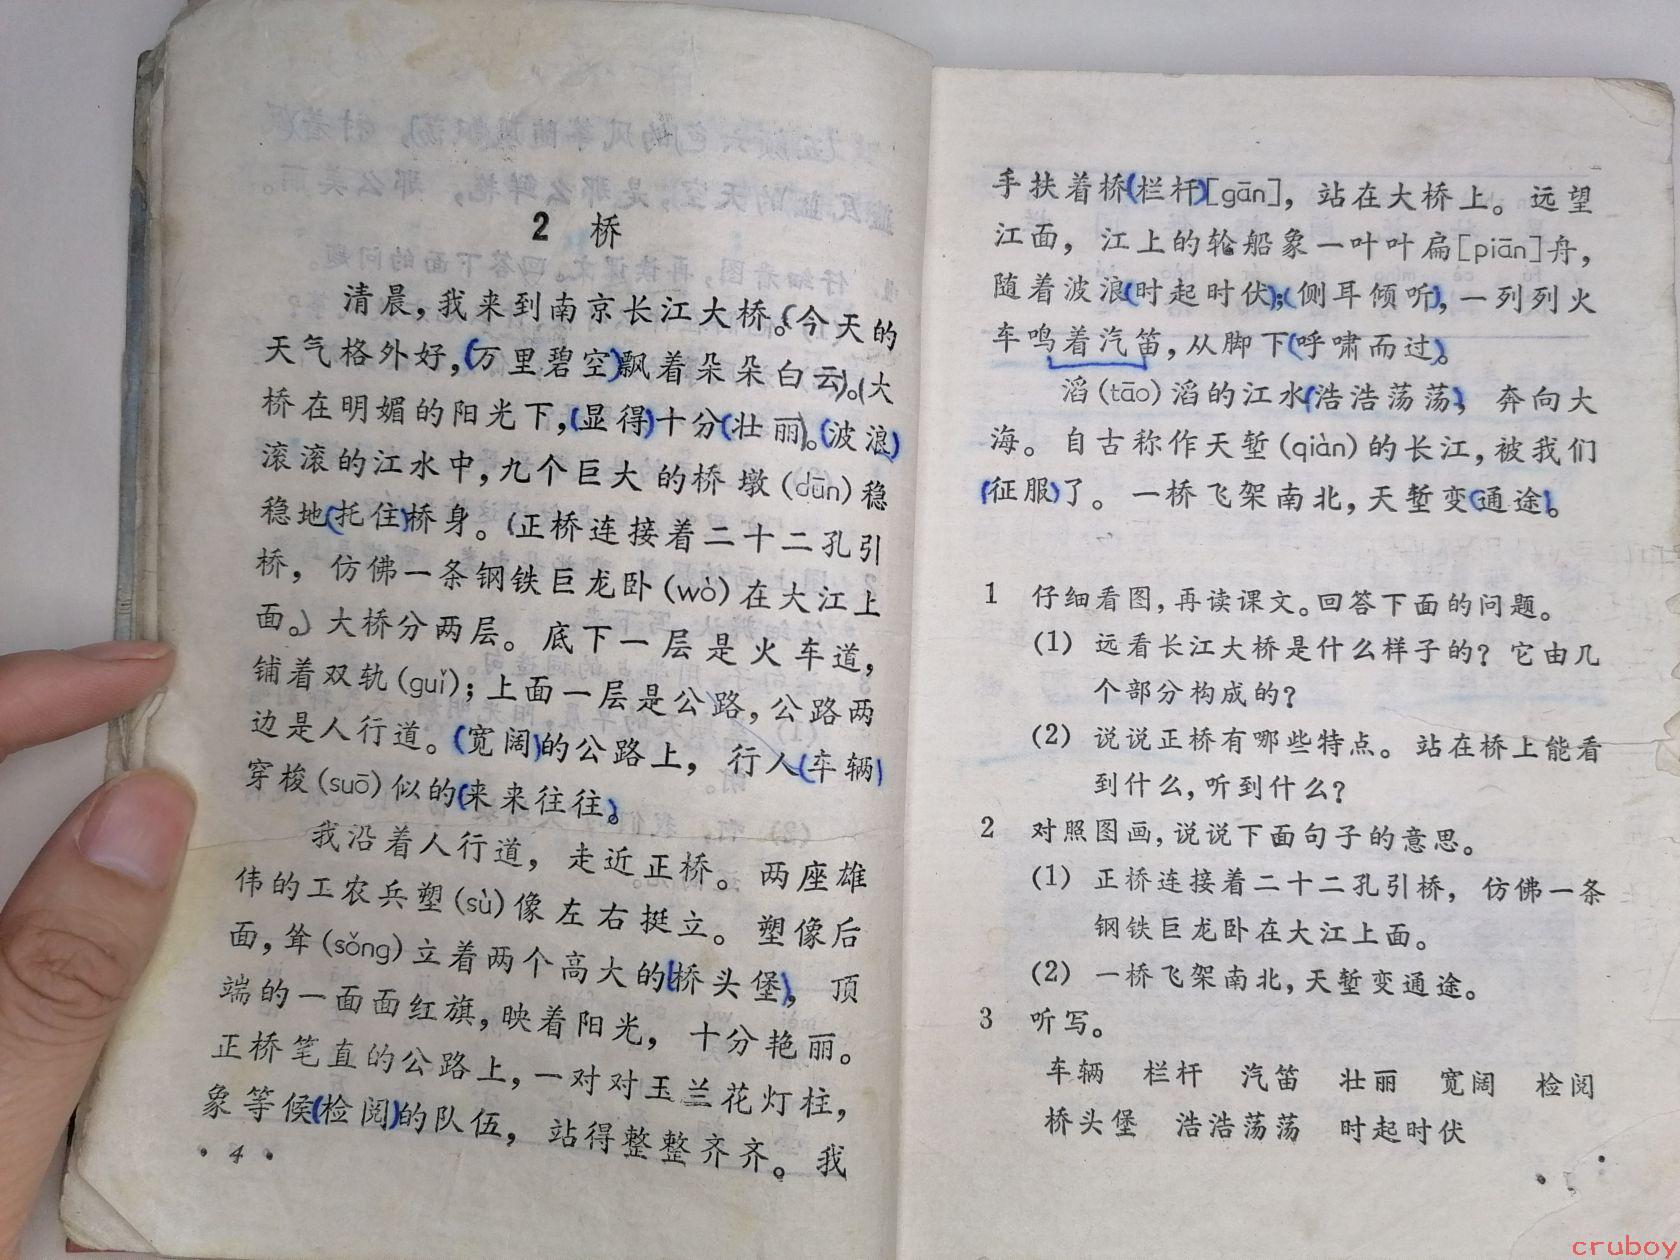 2 桥
清晨，我来到南京长江大桥。今天的
天气格外好，万里碧空飘着朵朵白云。大
桥在明媚的阳光下，显得十分壮丽。波浪
滚滚的江水中，九个巨大的桥墩(dūn)稳
稳地托住桥身。正桥连接着二十二孔引
桥，仿佛一条钢铁巨龙卧(wò)在大江上
面。大桥分两层。底下一层是火车道，
铺着双轨(guǐ)；上面一层是公路，公路两
边是人行道。宽阔的公路上，行人车辆
穿梭(suō)似的来来往往。
我沿着人行道，走近正桥。两座雄
伟的工农兵塑(sù)像左右挺立。塑像后
面，耸(sǒng)立着两个高大的桥头堡，顶
端的一面面红旗，映着阳光，十分艳丽。
正桥笔直的公路上，一对对玉兰花灯柱，
象等候检阅的队伍，站得整整齐齐。我
·4·
手扶着桥栏杆[gān]，站在大桥上。远望
江面，江上的轮船象一叶叶扁[piān]舟，
随着波浪时起时伏；侧耳倾听，一列列火
车鸣着汽笛，从脚下呼啸而过。
滔(tāo)滔的江水浩浩荡荡，奔向大
海。自古称作天堑(qiàn)的长江，被我们
征服了。一桥飞架南北，天堑变通途。
1 仔细看图，再读课文。回答下面的问题。
(1) 远看长江大桥是什么样子的？它由几
个部分构成的？
(2) 说说正桥有哪些特点。站在桥上能看
到什么，听到什么？
2 对照图画，说说下面句子的意思。
(1) 正桥连接着二十二孔引桥，仿佛一条
钢铁巨龙卧在大江上面。
(2) 一桥飞架南北，天堑变通途。
3 听写。
车辆 栏杆 汽笛 壮丽 宽阔 检阅
桥头堡 浩浩荡荡 时起时伏
cruboy